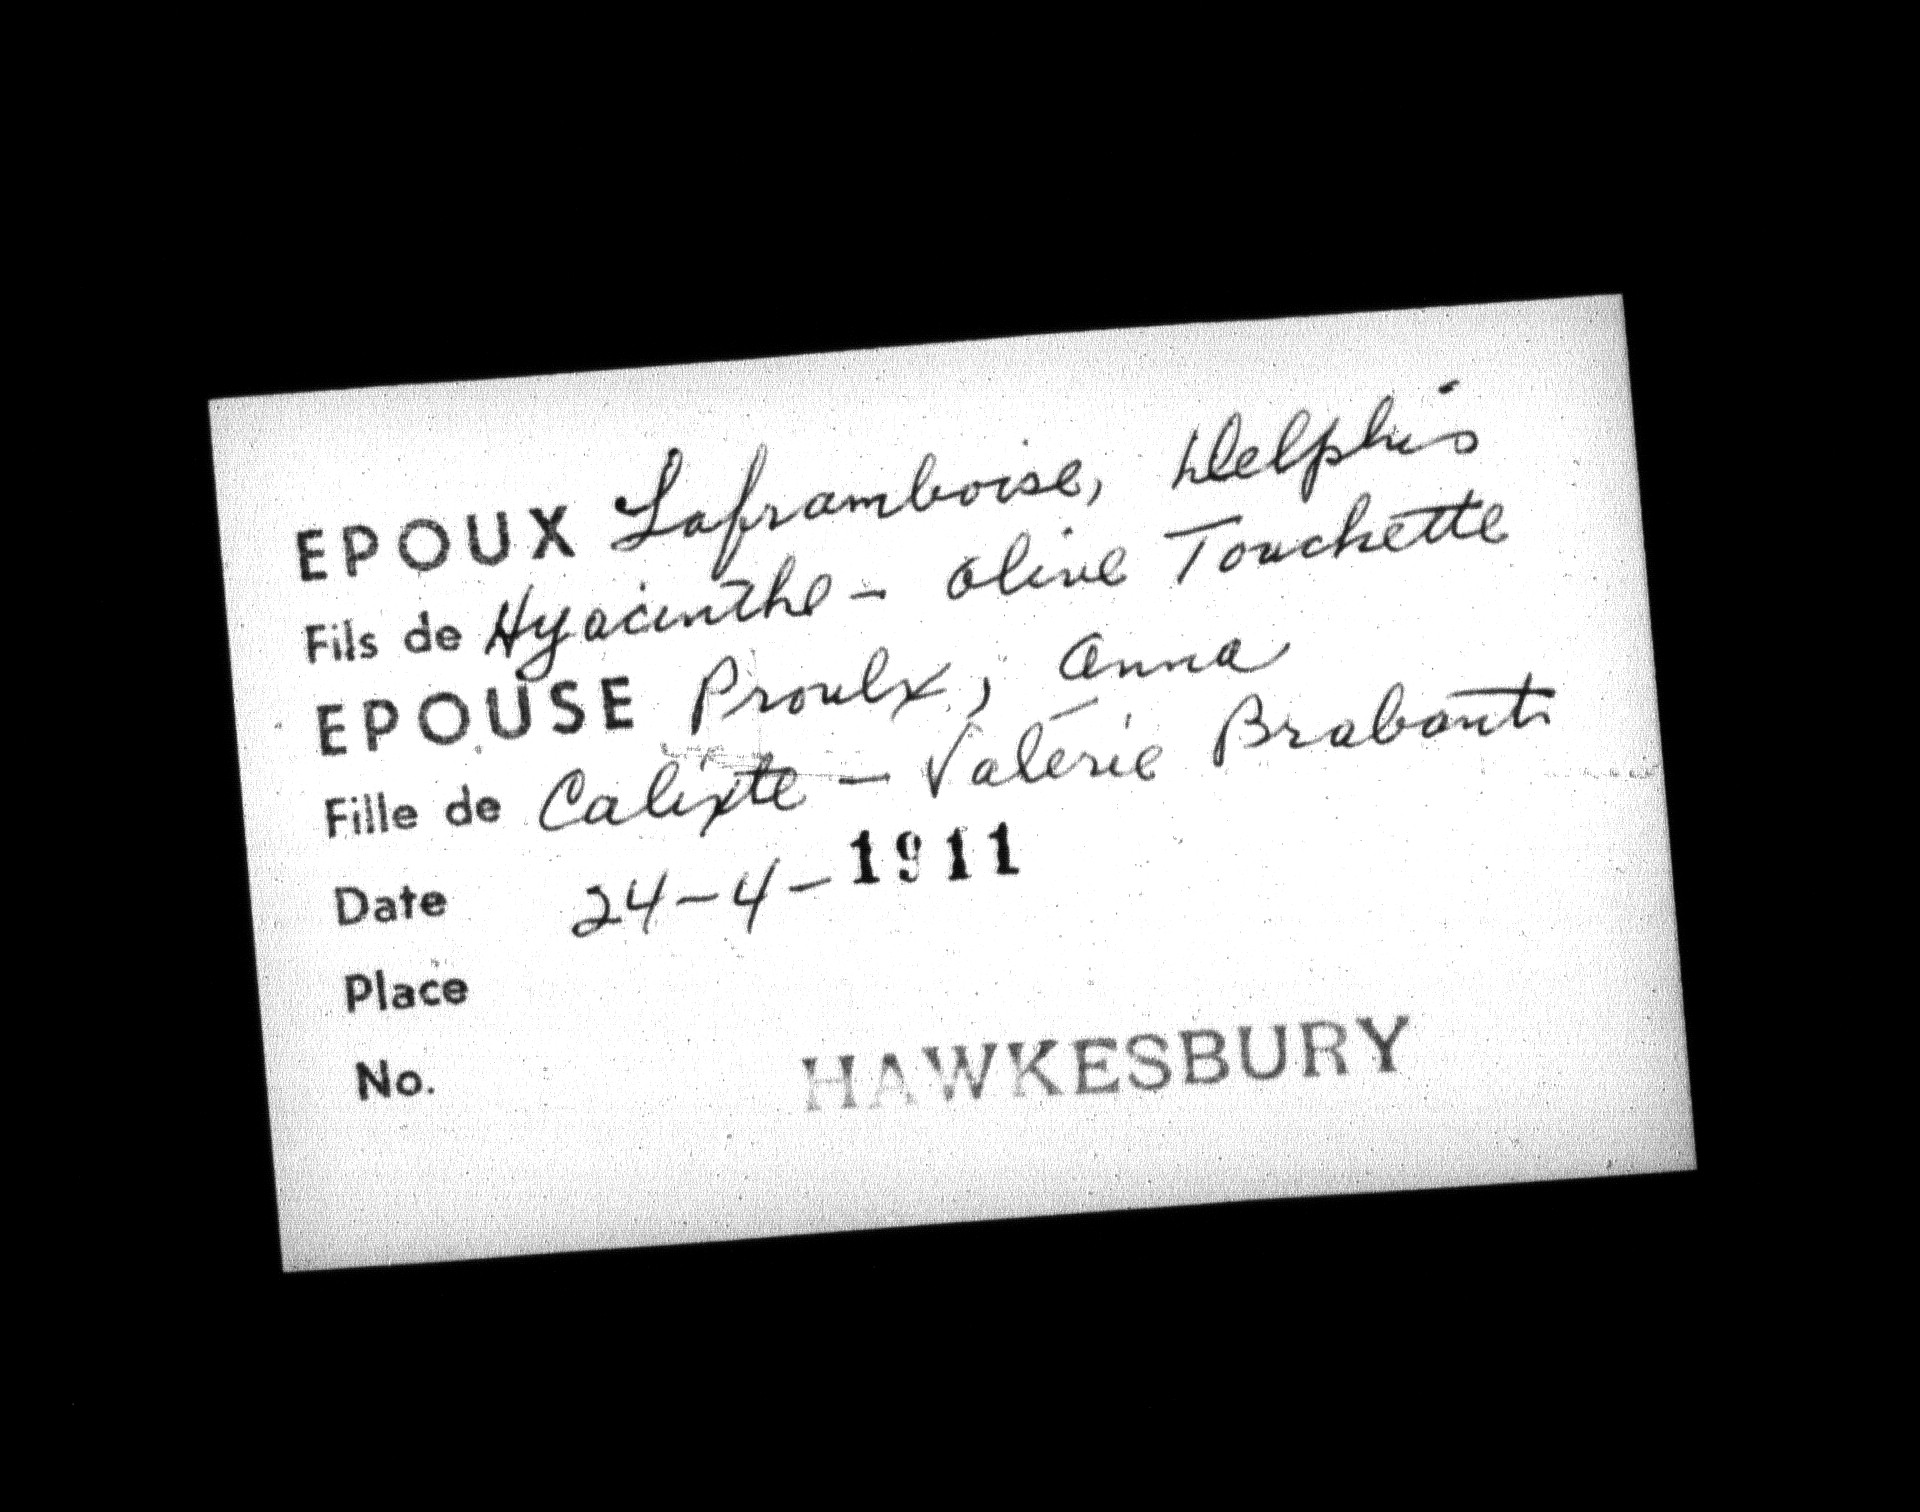 EPOUX Laframboise, Delphis
Fils de Hyacinthe - Olive Touchette
EPOUSE Proulx, Anna
Fille de Calixte - Valérie Brabant
Date 24-4-1911
Place
No.
HAWKESBURY